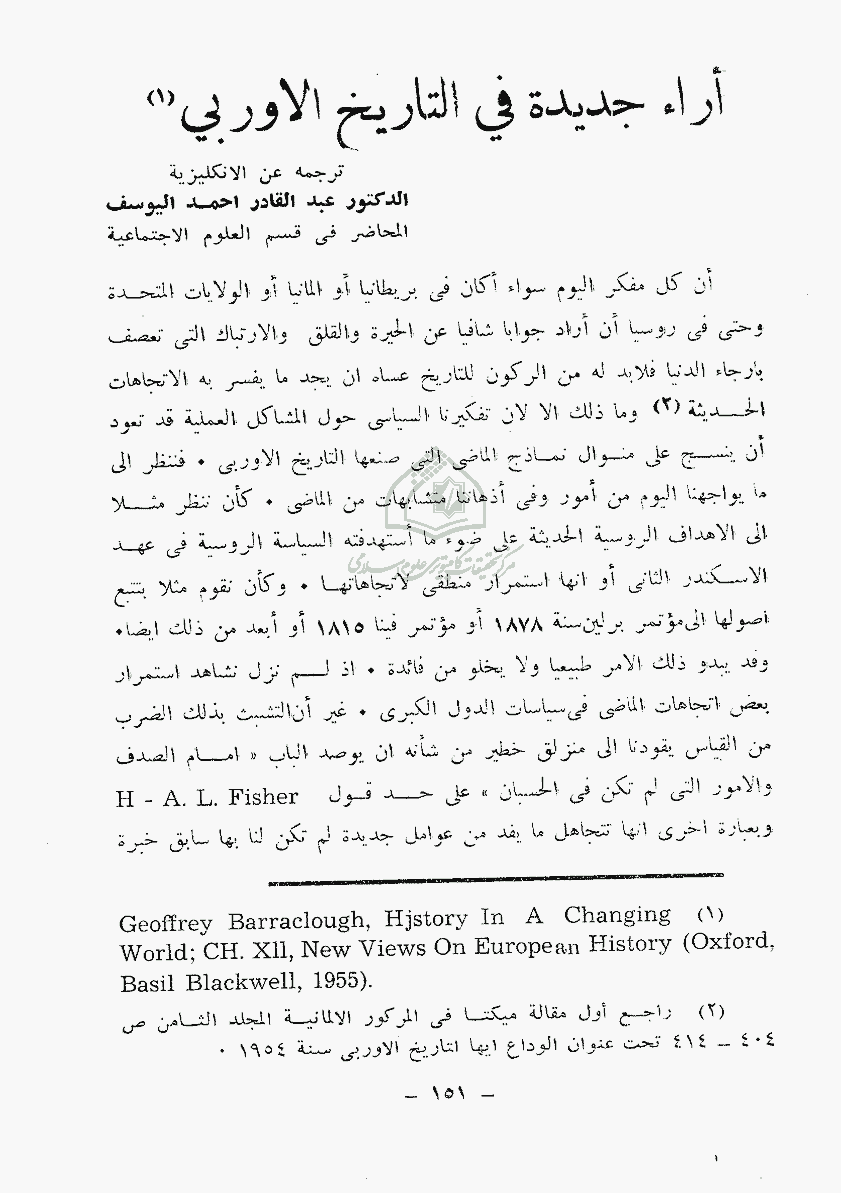 أراء جديدة في التاريخ الاوربي (١)
ترجمه عن الانكليزية
الدكتور عبد القادر احمد اليوسف
المحاضر فى قسم العلوم الاجتماعية
أن كل مفكر اليوم سواء أكان فى بريطانيا أو المانيا أو الولايات المتحدة
وحتى فى روسيا أن أراد جوابا شافيا عن الحيرة والقلق والارتباك التى تعصف
بارجاء الدنيا فلابد له من الركون للتاريخ عساه ان يجد ما يفسر به الاتجاهات
الحديثة (٢) وما ذلك الا لان تفكيرنا السياسى حول المشاكل العملية قد تعود
أن ينسج على منوال نماذج الماضى التى صنعها التاريخ الاوربى ٠ فننظر الى
ما يواجهنا اليوم من أمور وفى أذهاننا متشابهات من الماضى ٠ كأن ننظر مثلا
الى الاهداف الروسية الحديثة على ضوء ما أستهدفته السياسة الروسية فى عهد
الاسكندر الثانى أو انها استمرار منطقى لاتجاهاتها ٠ وكأن نقوم مثلا بتتبع
اصولها الى مؤتمر برلين سنة ١٨٧٨ أو مؤتمر فينا ١٨١٥ أو أبعد من ذلك ايضا٠
وقد يبدو ذلك الامر طبيعيا ولا يخلو من فائدة ٠ اذ لم نزل نشاهد استمرار
بعض اتجاهات الماضى فى سياسات الدول الكبرى ٠ غير أن التشبث بذلك الضرب
من القياس يقودنا الى منزلق خطير من شأنه ان يوصد الباب « امام الصدف
والامور التى لم تكن فى الحسبان » على حد قول H - A. L. Fisher
وبعبارة اخرى انها تتجاهل ما يفد من عوامل جديدة لم تكن لنا بها سابق خبرة
(١) Geoffrey Barraclough, Hjstory In A Changing
World; CH. Xll, New Views On European History (Oxford,
Basil Blackwell, 1955).
(٢) راجع أول مقالة ميكتا فى المركور الالمانية المجلد الثامن ص
٤٠٤ – ٤١٤ تحت عنوان الوداع ايها التاريخ الاوربى سنة ١٩٥٤ ٠
– ١٥١ –
١
مركز تحقيقات كامپيوترى علوم اسلامى